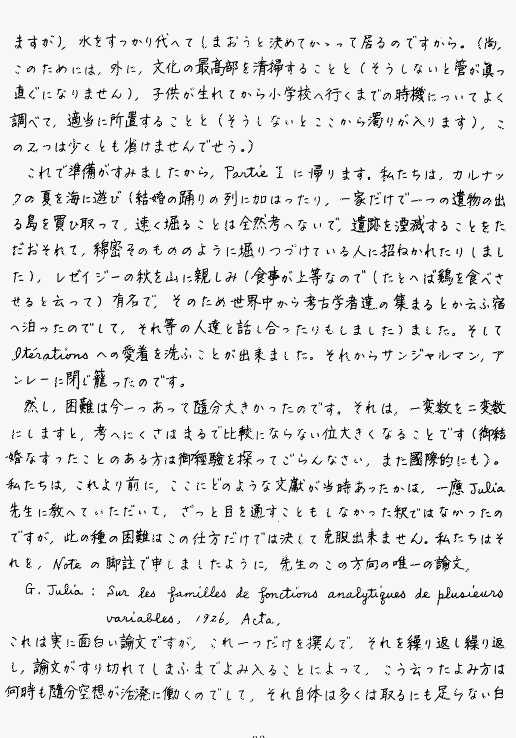 ますが), 水をすっかり代へてしまおうと決めてかゝって居るのですから。(尚,
このためには, 外に, 文化の最高部を清掃することと (そうしないと管が真っ
直ぐになりません), 子供が生れてから小学校へ行くまでの時機についてよく
調べて, 適当に所置することと (そうしないとここから濁りが入ります), こ
の2つは少くとも省けませんでせう。)
これで準備がすみましたから, Partie I に帰ります。私たちは, カルナッ
クの夏を海に遊び (結婚の踊りの列に加はったり, 一家だけで一つの遺物の出
る島を買ひ取って, 速く堀ることは全然考へないで, 遺跡を湮滅することをた
だおそれて, 綿密そのもののように堀りつづけている人に招ねかれたりしまし
た), レゼイジーの秋を山に親しみ (食事が上等なので (たとへば鶏を食べさ
せると云って) 有名で, そのため世界中から考古学者達の集まるとか云ふ宿
へ泊ったのでして, それ等の人達と話し合ったりもしました) ました。そして
Itérations への愛着を洗ふことが出来ました。それからサンジャルマン, ア
ンレーに閉ぢ籠ったのです。
然し, 困難は今一つあって随分大きかったのです。それは, 一変数を二変数
にしますと, 考へにくさはまるで比較にならない位大きくなることです (御結
婚なすったことのある方は御経験を探ってごらんなさい, また國際的にも)。
私たちは, これより前に, ここにどのような文献が当時あったかは, 一應 Julia
先生に教へていただいて, ざっと目を通すこともしなかった釈ではなかったの
ですが, 此の種の困難はこの仕方だけでは決して克服出来ません。私たちはそ
れを, Note の脚註で申しましたように, 先生のこの方向の唯一の論文,
G. Julia : Sur les familles de fonctions analytiques de plusieurs
variables, 1926, Acta,
これは実に面白い論文ですが, これ一つだけを撰んで, それを繰り返し繰り返
し, 論文がすり切れてしまふまでよみ入ることによって, こう云ったよみ方は
何時も随分空想が活溌に働くのでして, それ自体は多くは取るにも足らない白